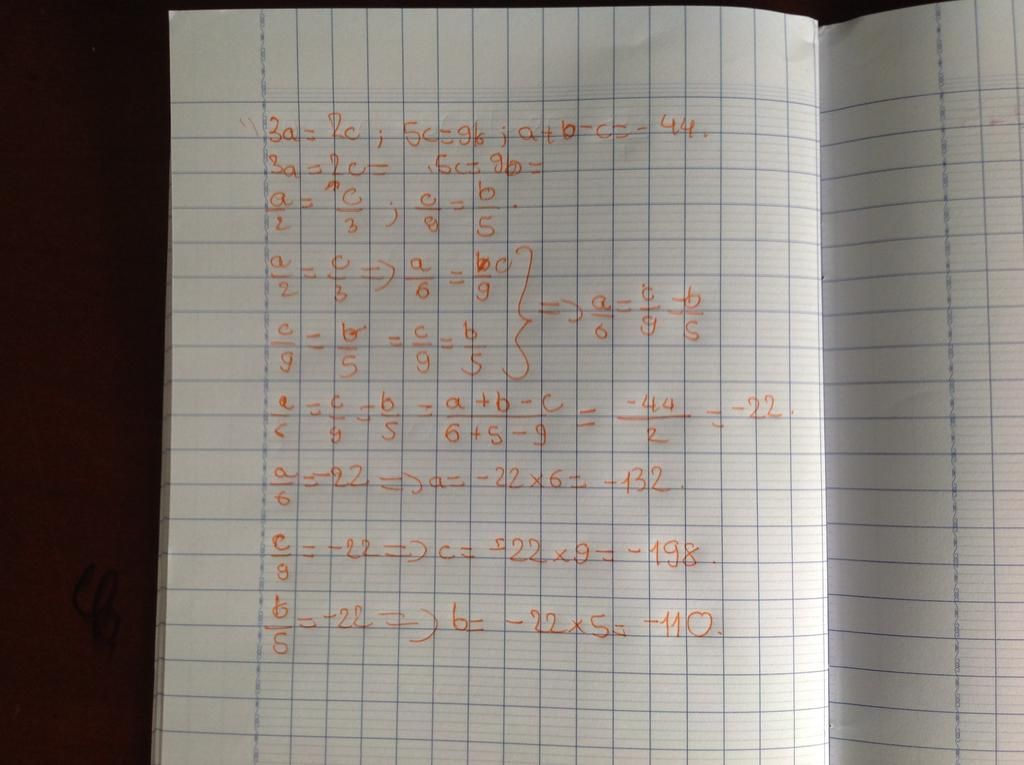 3a = 2c ; 5c = 9b ; a + b - c = - 44.
3a = 2c = 5c = 9b =
a/2 = c/3 ; c/9 = b/5 .
a/2 = c/3 => a/6 = c/9
c/9 = b/5 = c/9 = b/5 } => a/6 = c/9 = b/5
a/6 = c/9 = b/5 = (a + b - c)/(6 + 5 - 9) = -44/2 = -22.
a/6 = -22 => a = -22 × 6 = -132.
c/9 = -22 => c = -22 × 9 = -198.
b/5 = -22 => b = -22 × 5 = -110.